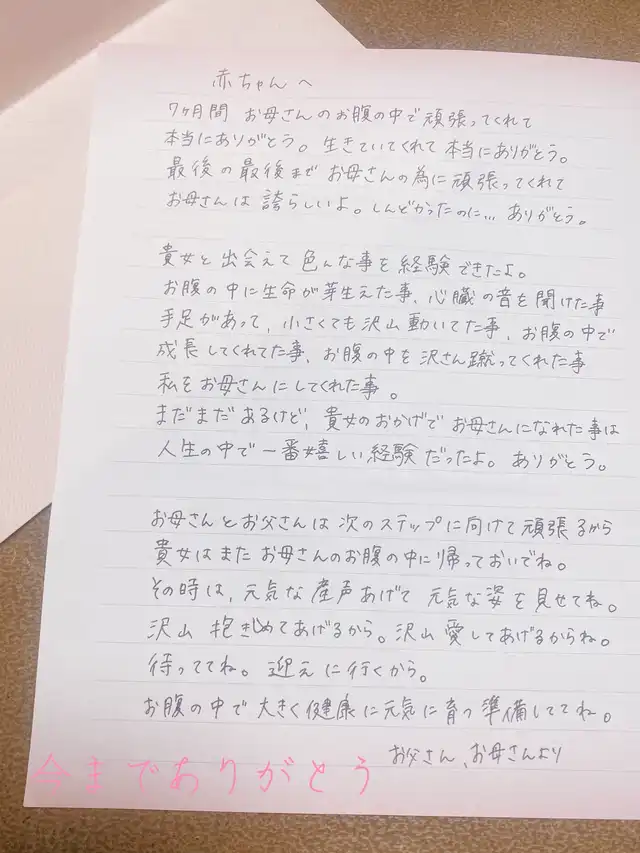 赤ちゃんへ
7ヶ月間 お母さんのお腹の中で頑張ってくれて
本当にありがとう。生きていてくれて本当にありがとう。
最後の最後まで お母さんの為に頑張ってくれて
お母さんは誇らしいよ。しんどかったのに... ありがとう。
貴女と出会えて色んな事を経験できたよ。
お腹の中に生命が芽生えた事、心臓の音を聞けた事
手足があって、小さくても沢山動いてた事、お腹の中で
成長してくれてた事、お腹の中を沢さん蹴ってくれた事
私をお母さんにしてくれた事。
まだまだあるけど、貴女のおかげでお母さんになれた事は
人生の中で一番嬉しい経験だったよ。ありがとう。
お母さんとお父さんは次のステップに向けて頑張るから
貴女はまたお母さんのお腹の中に帰っておいでね。
その時は、元気な産声あげて 元気な姿を見せてね。
沢山 抱きしめてあげるから。沢山愛してあげるからね。
待っててね。迎えに行くから。
お腹の中で大きく健康に元気に育つ準備しててね。
お父さん、お母さんより
今までありがとう